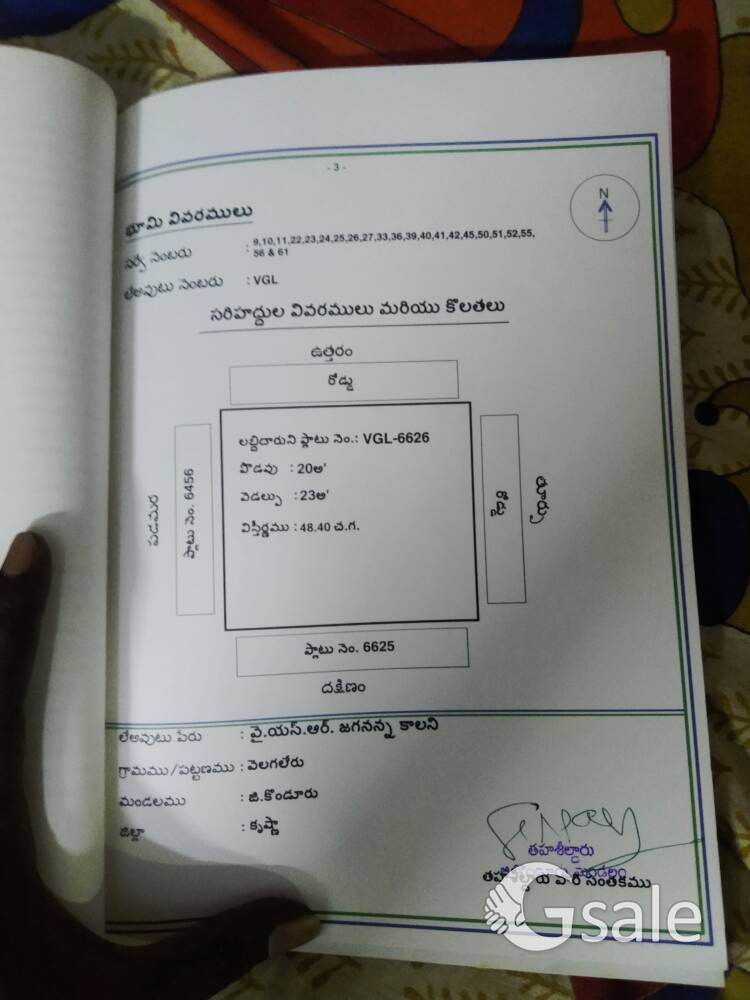 - 3 -
N
భూమి వివరములు
సర్వే నెంబరు : 9,10,11,22,23,24,25,26,27,33,36,39,40,41,42,45,50,51,52,55,
56 & 61
లేఅవుటు నెంబరు : VGL
సరిహద్దుల వివరములు మరియు కొలతలు
ఉత్తరం
రోడ్డు
పడమర
ప్లాటు నెం. 6456
లబ్దిదారుని ప్లాటు నెం.: VGL-6626
పొడవు : 20అ'
వెడల్పు : 23అ'
విస్తీర్ణము : 48.40 చ.గ.
రోడ్డు
తూర్పు
ప్లాటు నెం. 6625
దక్షిణం
లేఅవుటు పేరు : వై.యస్.ఆర్. జగనన్న కాలని
గ్రామము/పట్టణము : వెలగలేరు
మండలము : జి.కొండూరు
జిల్లా : కృష్ణా
తహశీల్దారు
సంతకము
Gsale